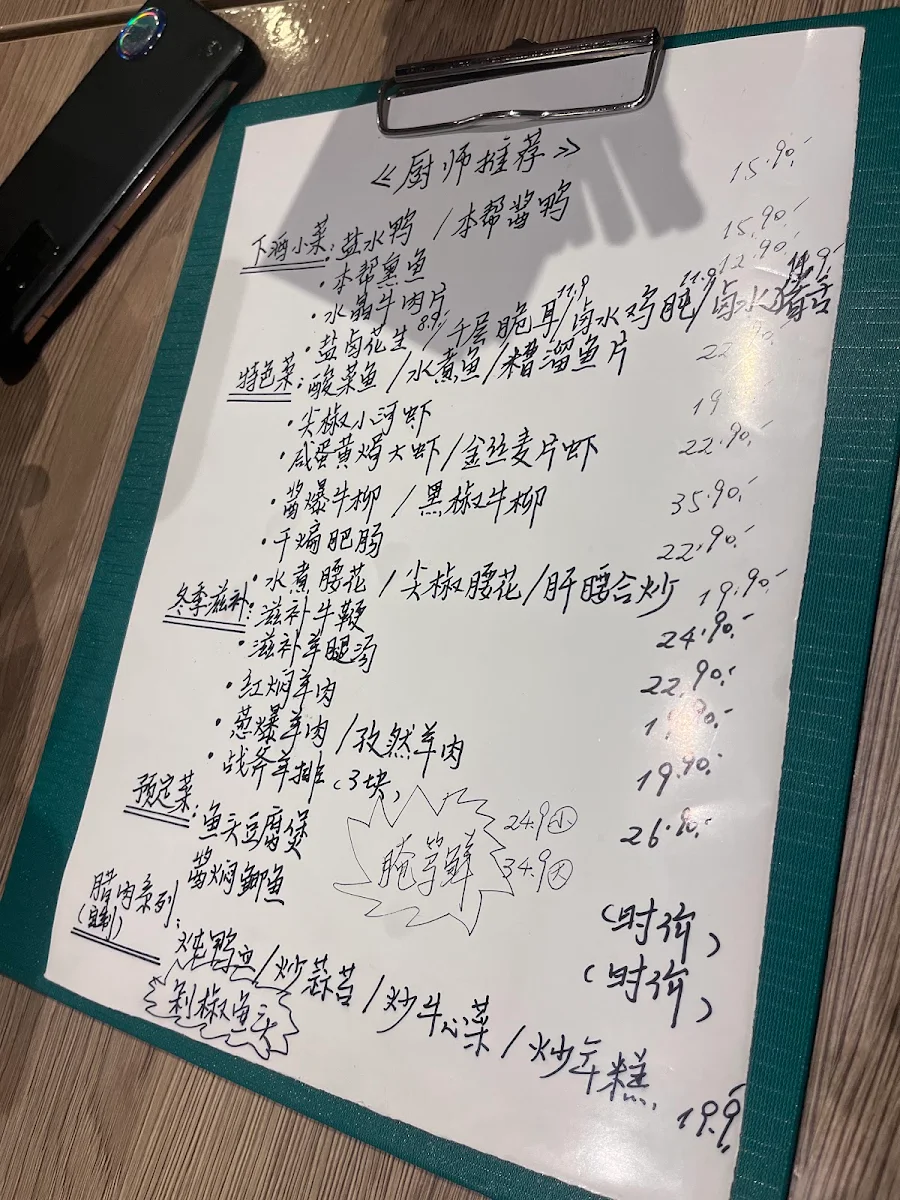 《厨师推荐》
下酒小菜：盐水鸭 / 本帮酱鸭 15.90.-
·本帮熏鱼 15.90.-
·水晶牛肉片 12.90.-
·盐卤花生 8.9.- / 千层脆耳 11.9 / 卤水鸡肫 11.9 / 卤水猪舌 11.9.-
特色菜：酸菜鱼 / 水煮鱼 / 糟溜鱼片
·尖椒小河虾
·咸蛋黄焗大虾 / 金丝麦片虾 22.90.-
·酱爆牛柳 / 黑椒牛柳 35.90.-
·干煸肥肠 22.90.-
·水煮腰花 / 尖椒腰花 / 肝腰合炒 19.90.-
冬季滋补：滋补牛鞭 24.90.-
·滋补羊腿汤 22.90.-
·红焖羊肉
·葱爆羊肉 / 孜然羊肉 19.90.-
·战斧羊排（3块） 26.90.-
腌笃鲜 24.9小
34.9大
预定菜：鱼头豆腐煲（时价）
酱焖鲫鱼（时价）
腊肉系列：
（自制）
炒蒜苔 / 炒牛心菜 / 炒年糕 19.9
剁椒鱼头